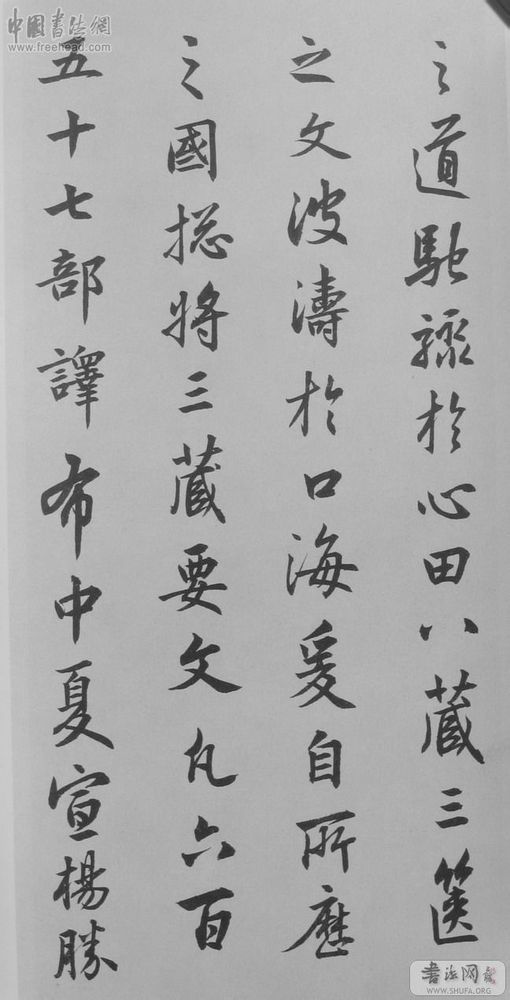 之道馳驟於心田八藏三篋
之文波濤於口海爰自所歷
之國揔將三藏要文凡六百
五十七部譯布中夏宣楊勝
中國書法網
www.freehead.com
書法网
WWW.SHUFA.ORG